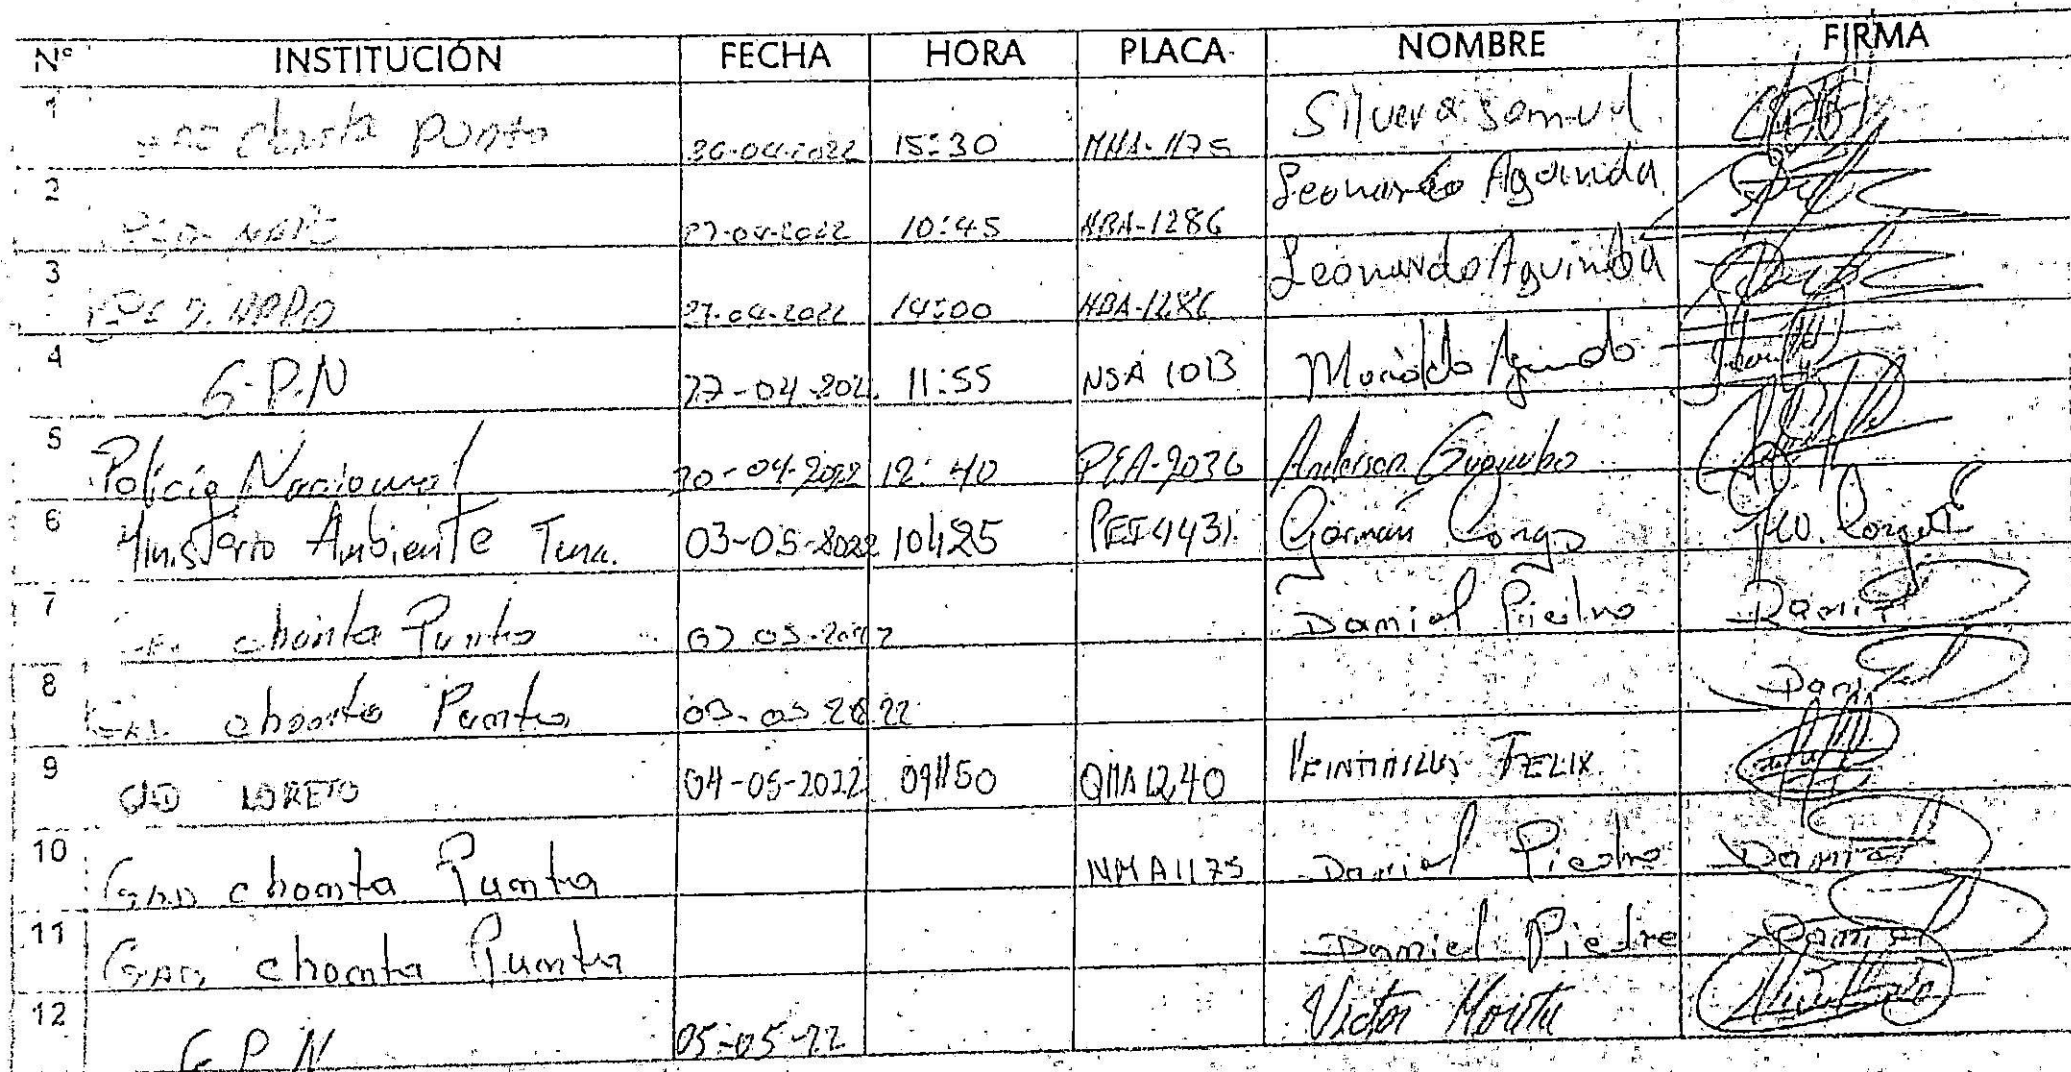 Nº INSTITUCIÓN FECHA HORA PLACA NOMBRE FIRMA
1 Punto 26-04-2022 15:30 MMA-1175 Silvera Samuel
2 27-04-2022 10:45 NBA-1286 Leonardo Aguinda
3 27-04-2022 14:00 NBA-1286 Leonardo Aguinda
4 G.P.N 27-04-202 11:55 NSA 1013
5 Policia Nacional 30-04-2022 12:40 PEA-9036 Anderson
6 Ministerio Ambiente Tena. 03-05-2022 10H25 PEI4431. Germán Congo
7 chonta Punta 03 05-2022 Daniel Piedra Daniel
8 GAD chonta Punta 03-05 2022 Daniel
9 LORETO 04-05-2022 09H50 QMA1240 VEINTIMILLA FELIX
10 GAD chonta Punta NMA1175 Daniel Piedra Daniel
11 GAD chonta Punta Daniel Piedra Daniel
12 G.P.N 05-05-22 Victor